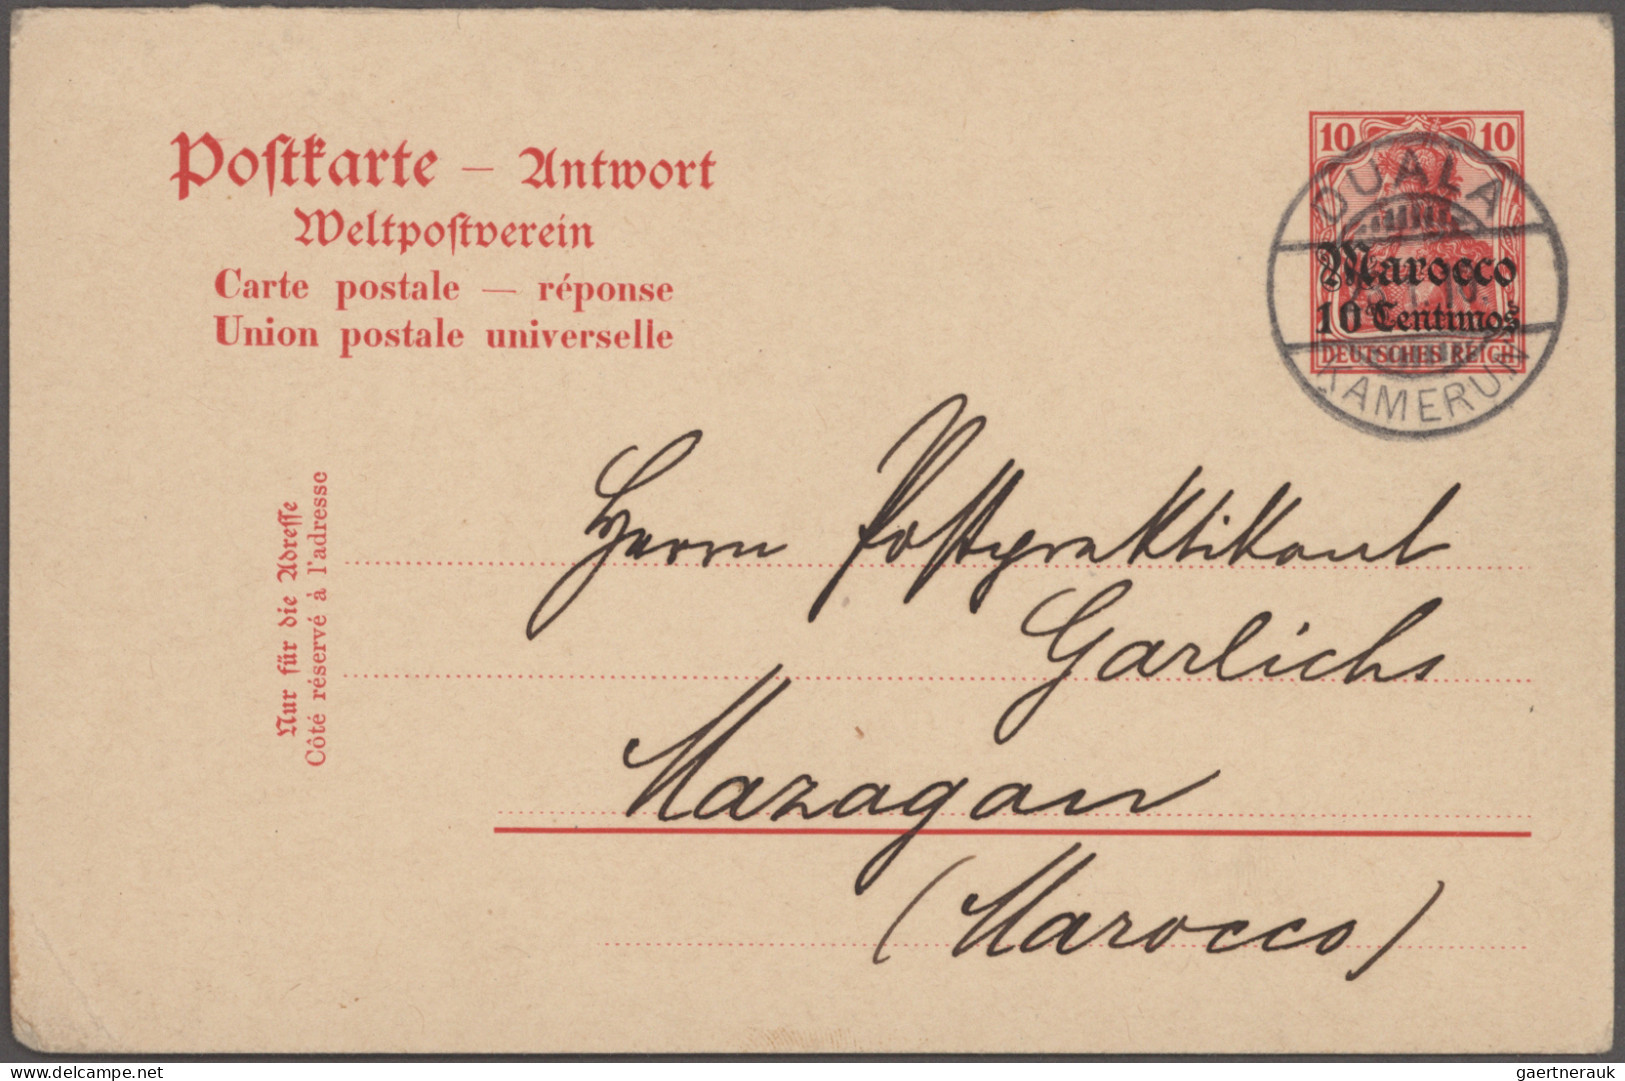 Postkarte – Antwort
Weltpostverein
Carte postale — réponse
Union postale universelle
10 10
Marocco
10 Centimos
DEUTSCHES REICH
DUALA
KAMERUN
Nur für die Adresse
Côté réservé à l'adresse
Herrn Postpraktikant
Garlichs
Mazagan
(Marocco)
delcampe.net
gaertnerauk